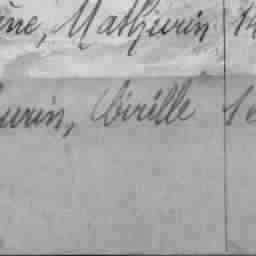 ine, Mathurin 14
urin, Cirille 1